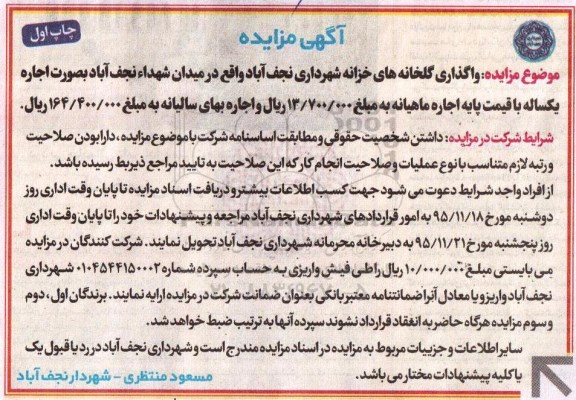 آگهی مزایده
چاپ اول
موضوع مزایده: واگذاری گلخانه های خزانه شهرداری نجف آباد واقع در میدان شهداء نجف آباد بصورت اجاره
یکساله با قیمت پایه اجاره ماهیانه به مبلغ ۱۳/۷۰۰/۰۰۰ ریال و اجاره بهای سالیانه به مبلغ ۱۶۴/۴۰۰/۰۰۰ ریال.
شرایط شرکت در مزایده: داشتن شخصیت حقوقی و مطابقت اساسنامه شرکت با موضوع مزایده، دارا بودن صلاحیت
و رتبه لازم متناسب با نوع عملیات و صلاحیت انجام کار که این صلاحیت به تایید مراجع ذیربط رسیده باشد.
از افراد واجد شرایط دعوت می شود جهت کسب اطلاعات بیشتر و دریافت اسناد مزایده تا پایان وقت اداری روز
دوشنبه مورخ ۹۵/۱۱/۱۸ به امور قراردادهای شهرداری نجف آباد مراجعه و پیشنهادات خود را تا پایان وقت اداری
روز پنجشنبه مورخ ۹۵/۱۱/۲۱ به دبیرخانه محرمانه شهرداری نجف آباد تحویل نمایند. شرکت کنندگان در مزایده
می بایستی مبلغ ۱۰/۰۰۰/۰۰۰ ریال را طی فیش واریزی به حساب سپرده شماره ۰۱۰۴۵۴۴۱۵۰۰۰۲ شهرداری
نجف آباد واریز و یا معادل آنرا ضمانتنامه معتبر بانکی بعنوان ضمانت شرکت در مزایده ارایه نمایند. برندگان اول، دوم
و سوم مزایده هرگاه حاضر به انعقاد قرارداد نشوند سپرده آنها به ترتیب ضبط خواهد شد.
سایر اطلاعات و جزییات مربوط به مزایده در اسناد مزایده مندرج است و شهرداری نجف آباد در رد یا قبول یک
یا کلیه پیشنهادات مختار می باشد.
مسعود منتظری - شهردار نجف آباد